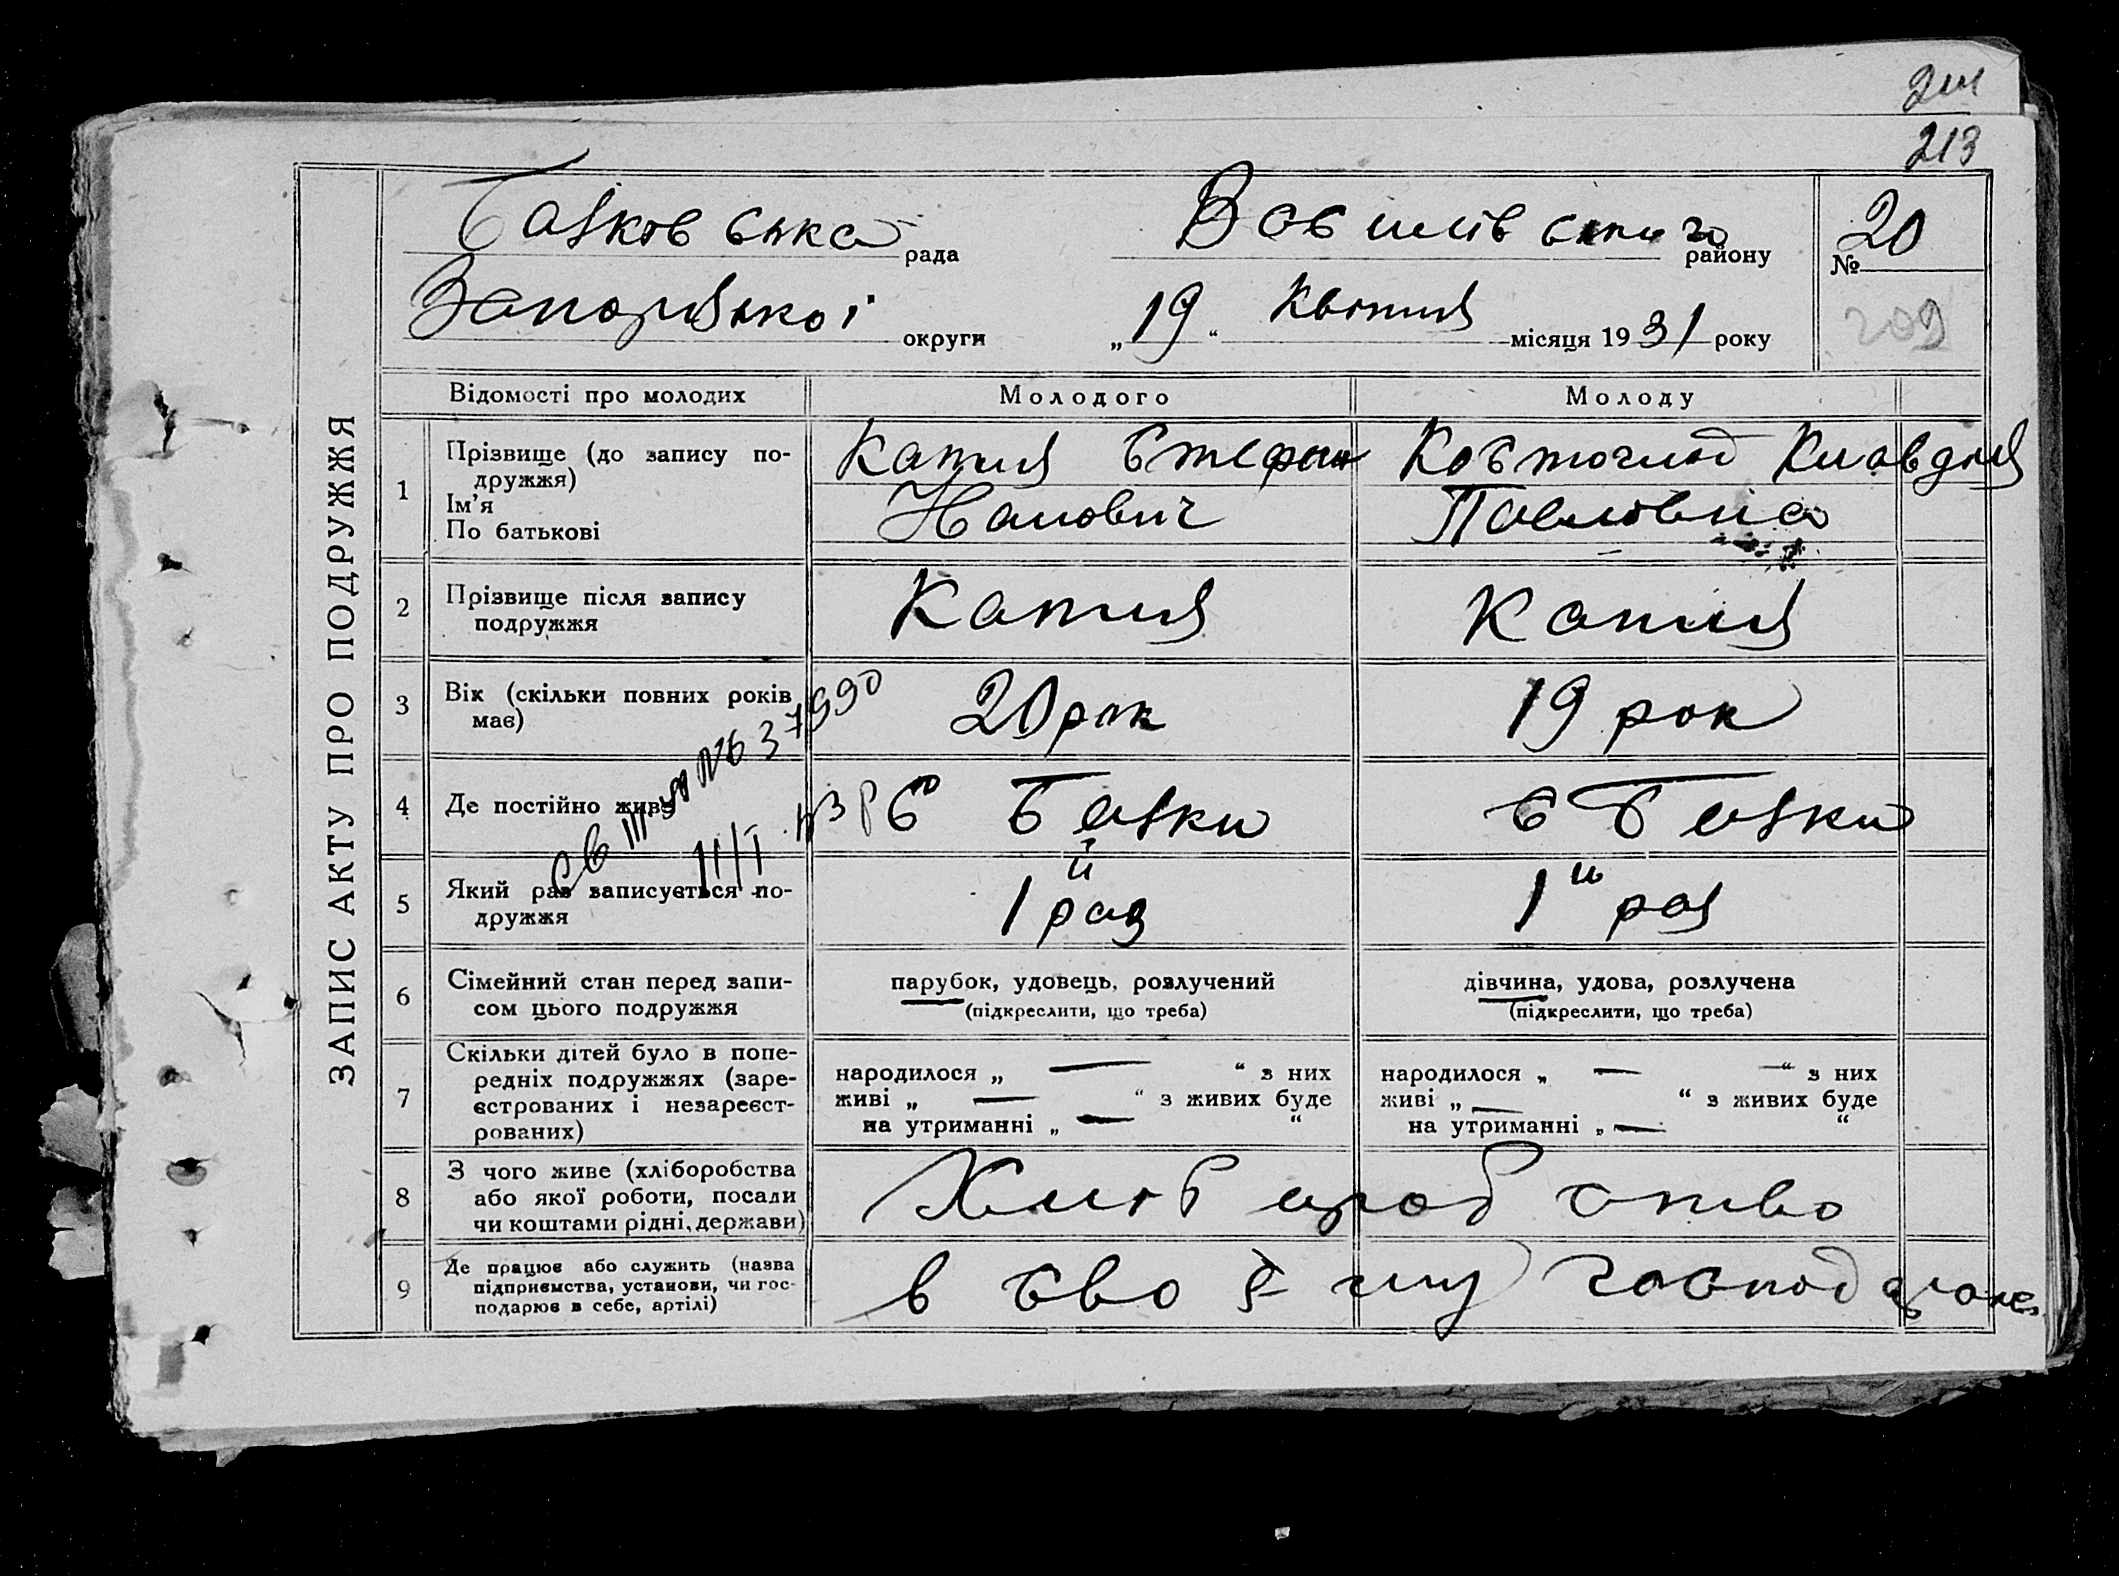 213
Балковська рада Василівського району № 20
Запорізької округи „19“ Квітня місяця 1931 року
209
ЗАПИС АКТУ ПРО ПОДРУЖЖЯ
Відомості про молодих Молодого Молоду
1 Прізвище (до запису по-
дружжя)
Ім’я
По батькові
Капля Стефан
Костоглод Клавдия
Павловна
2 Прізвище після запису
подружжя
Капля Капля
3 Вік (скільки повних років
має)
20 рок 19 рок
4 Де постійно живе
С Балки с Балки
№ 37990
5 Який раз записується по-
дружжя
1й раз 1й раз
6 Сімейний стан перед запи-
сом цього подружжя
парубок, удовець, розлучений
(підкреслити, що треба)
дівчина, удова, розлучена
(підкреслити, що треба)
7 Скільки дітей було в попе-
редніх подружжях (заре-
єстрованих і незареєст-
рованих)
народилося „ — “ з них
живі „ — “ з живих буде
на утриманні „ — “
народилося „ — “ з них
живі „ — “ з живих буде
на утриманні „ — “
8 З чого живе (хліборобства
або якої роботи, посади
чи коштами рідні, держави)
Хліборобство
9 Де працює або служить (назва
підприємства, установи, чи гос-
подарює в себе, артілі)
в своєму